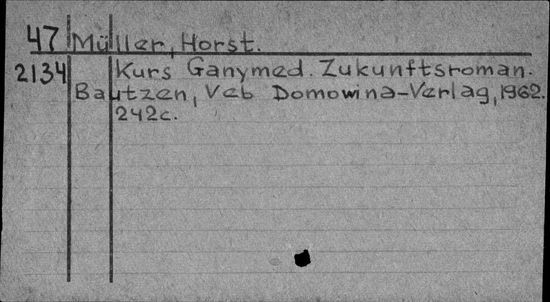 47 Müller, Horst.
2134 Kurs Ganymed. Zukunftsroman.
Bautzen, Veb Domowina-Verlag, 1962.
242c.